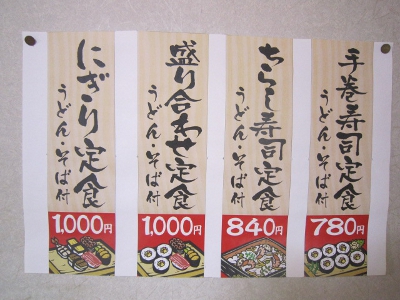 手巻寿司定食
うどん・そば付
780円
ちらし寿司定食
うどん・そば付
840円
盛り合わせ定食
うどん・そば付
1,000円
にぎり定食
うどん・そば付
1,000円